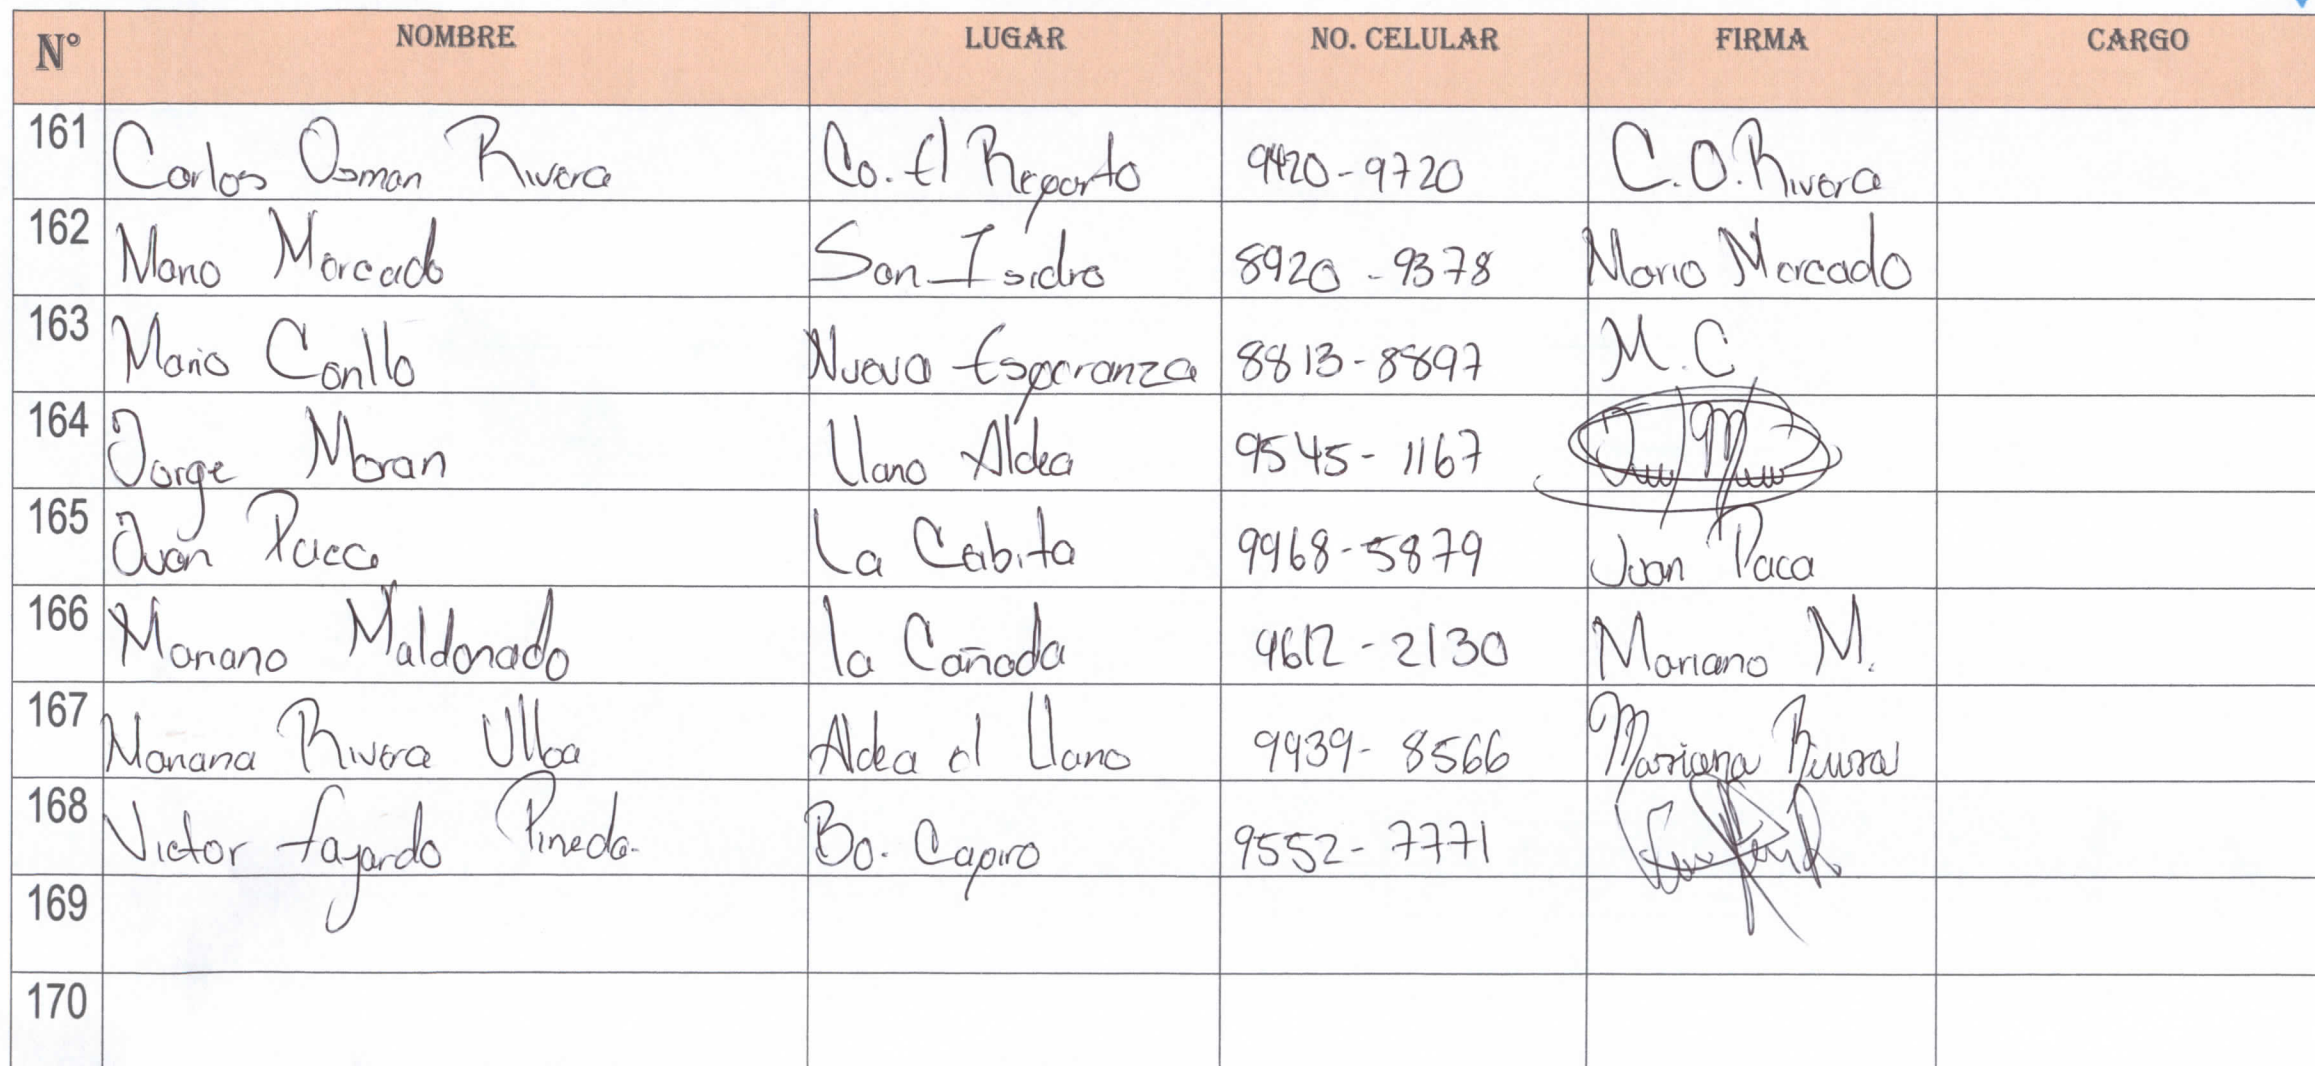 N° NOMBRE LUGAR NO. CELULAR FIRMA CARGO
161 Carlos Osman Rivera Co. El Reparto 9420-9720 C.O.Rivera
162 Mario Mercado San Isidro 8920-9378 Mario Mercado
163 Mario Carillo Nueva Esperanza 8813-8897 M.C
164 Jorge Moran Llano Aldea 9545-1167
165 Juan Paca La Cabita 9968-5879 Juan Paca
166 Mariano Maldonado La Cañada 9612-2130 Mariano M.
167 Mariana Rivera Ulloa Aldea el Llano 9939-8566 Mariana Rivera
168 Victor fajardo Pineda. Bo. Capiro 9552-7771
169
170